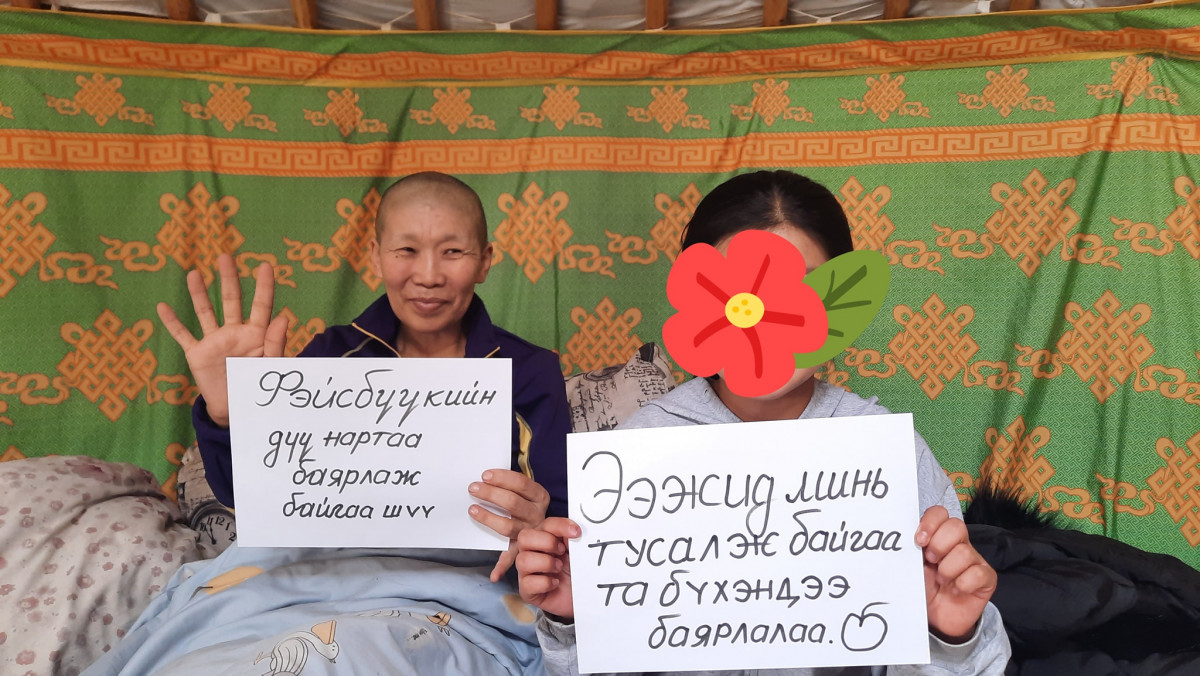 Фэйсбүүкийн
дүү нартаа
баярлаж
байгаа шүү
Ээжид минь
тусалж байгаа
та бүхэндээ
баярлалаа.